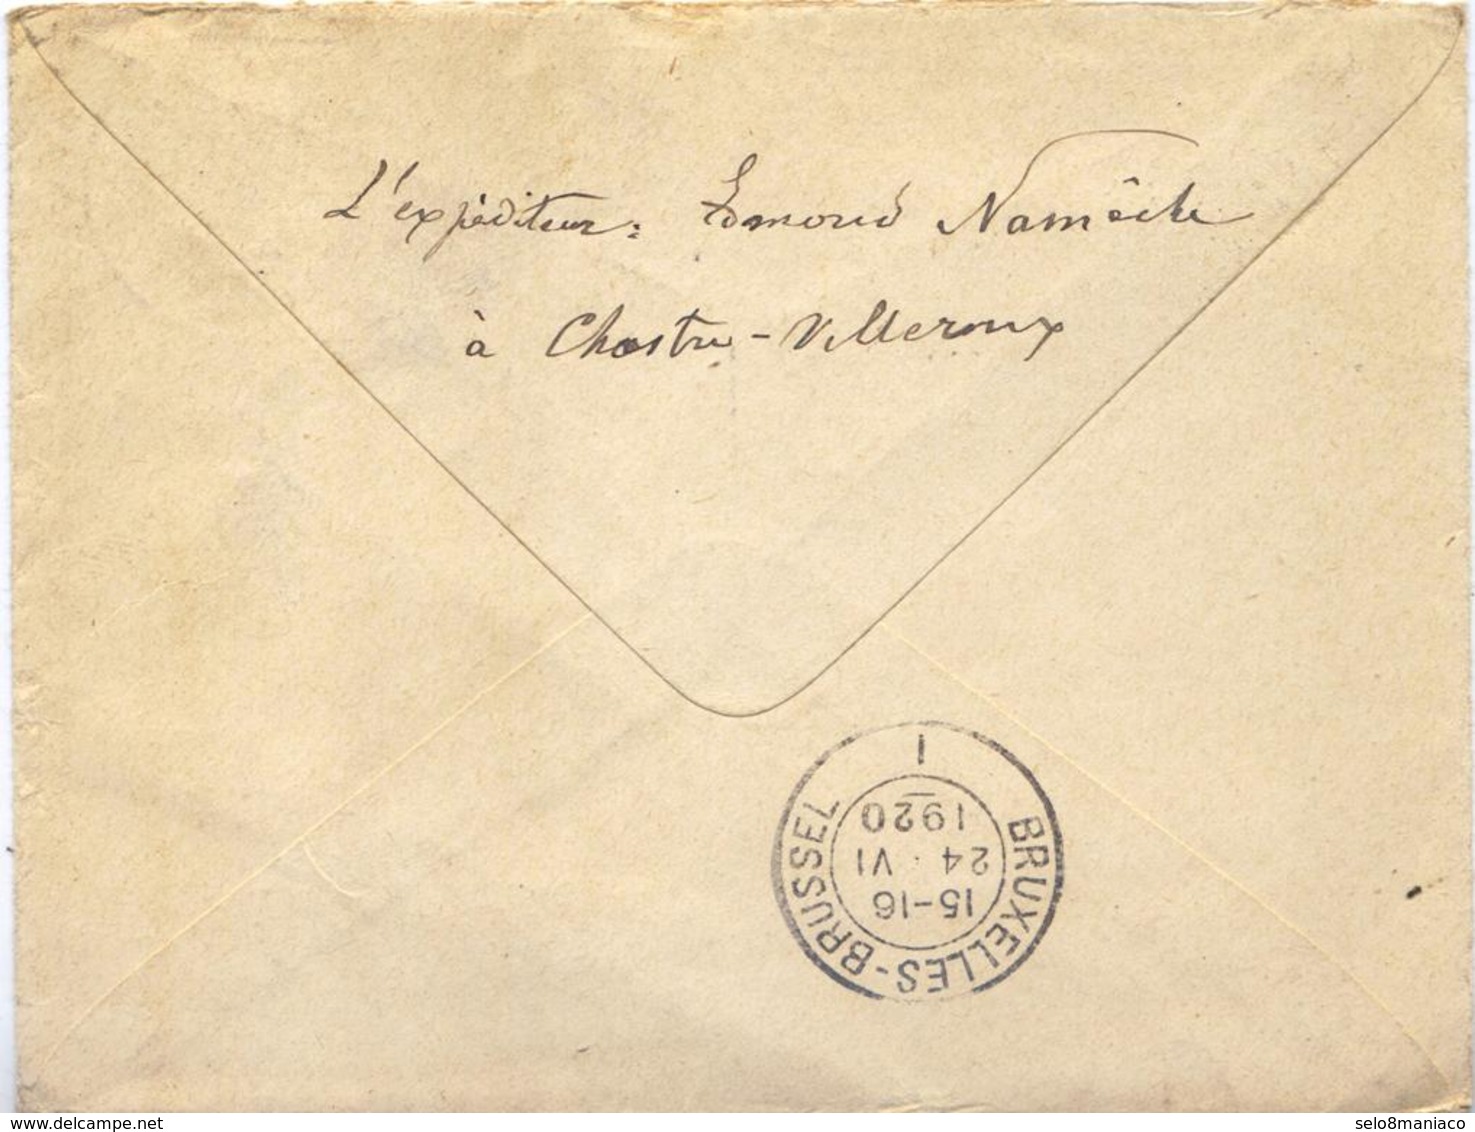 L'expéditeur: Edmond Namêche
à Chastre-Villeroux
BRUXELLES-BRUSSEL
15-16
24 · VI
1920
1
delcampe.net
selo8maniaco